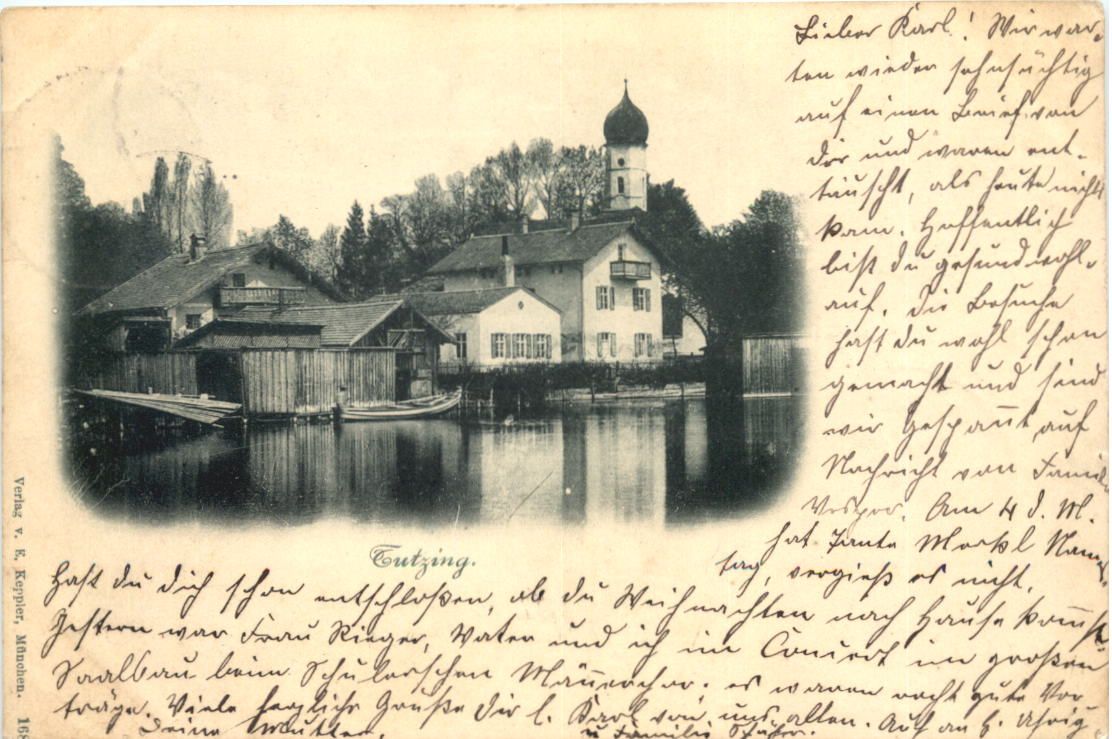 Lieber Karl! Wir war-
ten wieder sehnsüchtig
auf einen Brief von
dir und waren ent-
täuscht, als heute nicht
kam. Hoffentlich
bist du gesund wohl-
auf. Die Besuche
hast du wohl schon
gemacht und sind
wir gespannt auf
Nachricht von Famil
Am 4 d. M.
hat Tante Merkl Namens
tag, vergieß es nicht.
Tutzing.
Hast du dich schon entschloßen, ob du Weihnachten nach Hause kom̅st
Gestern war Frau Rieger, Vater und ich im Concert im großen
Saalbau beim Schülerschen Män̅erchor, es waren recht gute Vor
träge. Viele herzliche Grüße dir l. Karl von uns allen. Auch an
Deine Mutter. u Familie
Verlag v. E. Keppler, München. 168